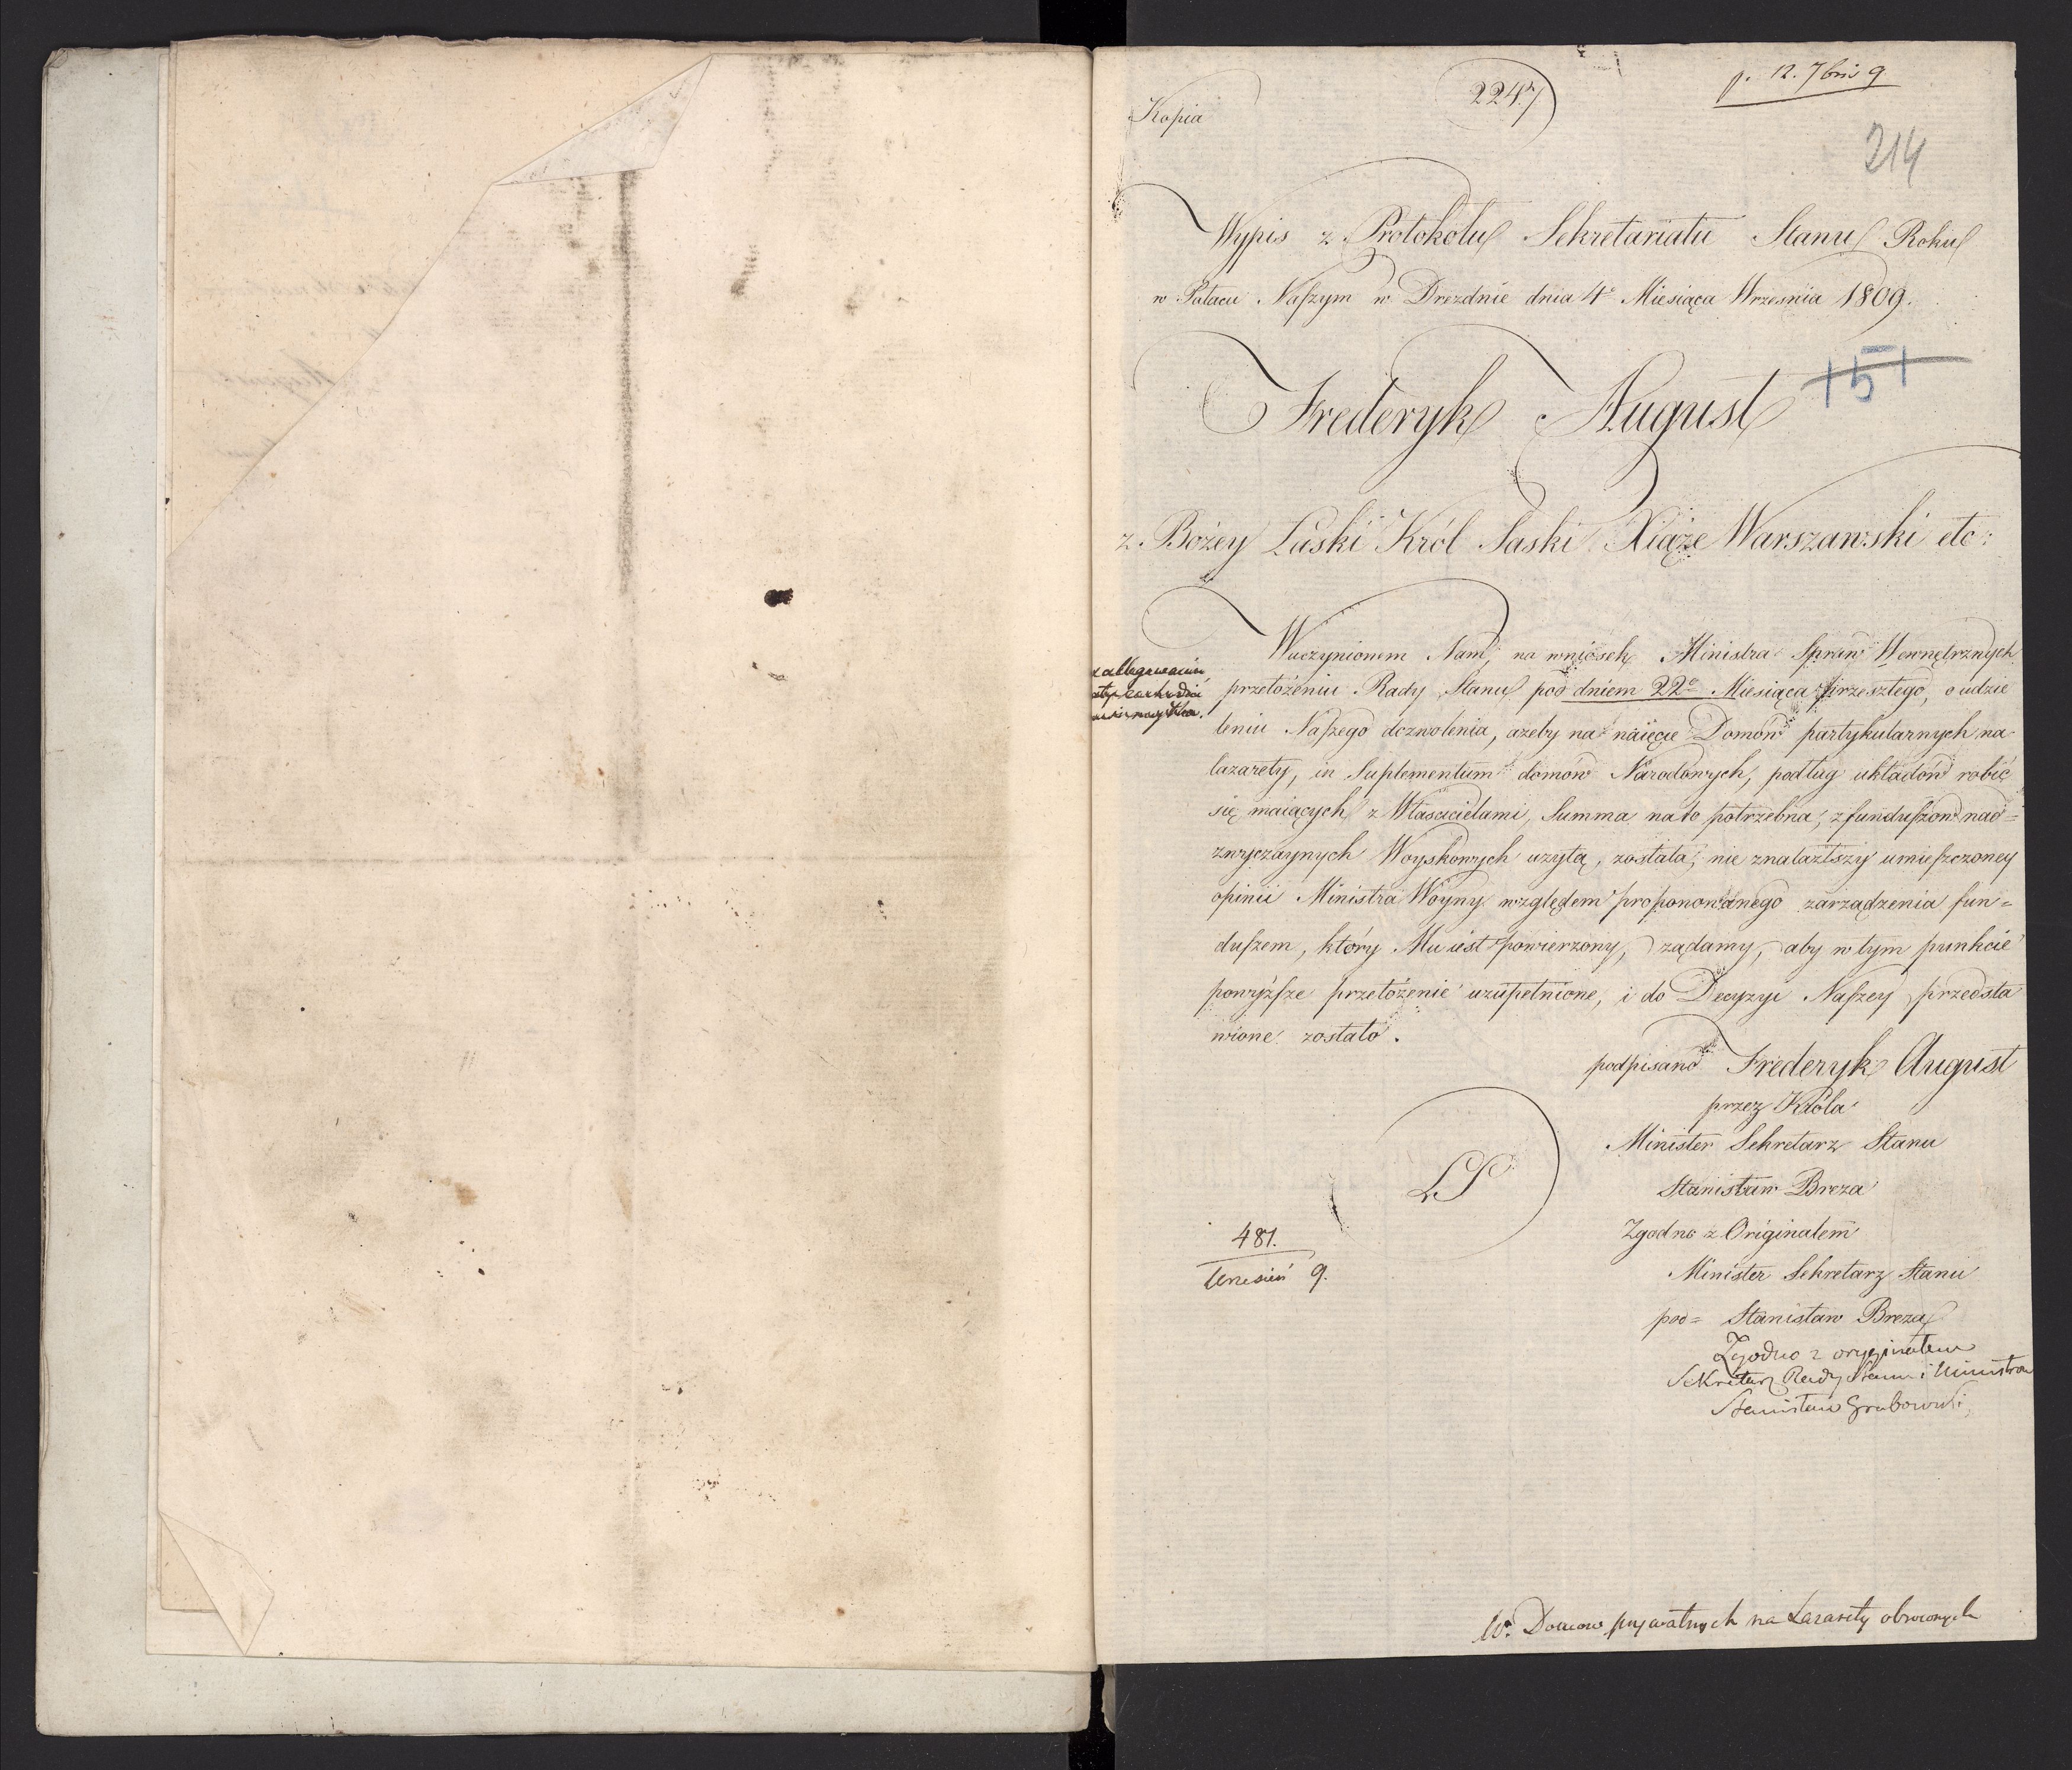 Kopia
2247
p. 12. 7bris 9
214
Wypis z Protokołu Sekretariatu Stanu Roku
w Pałacu Naszym w Dreznie dnia 4º Miesiąca Września 1809.
151
Frederyk August
z Bożey Łaski Król Saski Xiąże Warszawski etc:
W uczynionem Nam, na wniosek Ministra Spraw Wewnętrznych
przełożeniu Rady Stanu pod dniem 22º Miesiąca przeszłego, o udzie
leniu Naszego dozwolenia, ażeby na naięcie Domów partykularnych na
lazarety, in Suplementum domów Narodowych, podług układów robić
się maiących z Właścicielami, Summa na to potrzebna, z funduszów nad=
zwyczaynych Woyskowych użytą, została; nie znalazłszy umieszczoney
opinii Ministra Woyny względem proponowanego zarządzenia fun=
duszem, który Mu iest powierzony, żądamy, aby w tym punkcie
powyższe przełożenie uzupełnione, i do Decyzyi Naszey przedsta
wione zostało.
podpisano Frederyk August
przez Króla
Minister Sekretarz Stanu
Stanisław Breza
LS
Zgodno z Originałem
481.
Wrzesień 9.
Minister Sekretarz Stanu
pod= Stanisław Breza
Zgodno z oryginałem
Sekretarz Rady Stanu i Ministrów
Stanisław Grabowski
Wz. Domow prywatnych na Lazarety obroconych